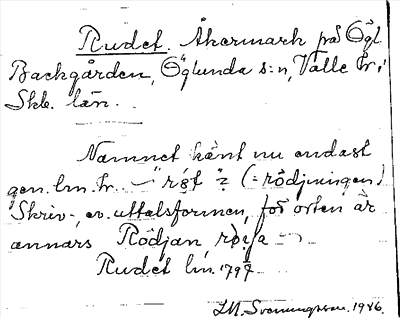 Rudet. Åkermark på Ögl
Backgården, Öglunda s:n, Valle hr,
Skb. län.
Namnet känt nu endast
gen. lm. hr. "röt"? (= rödjningen)
Skriv-, ev. uttalsformen, för orten är
annars Rödjan,
Rudet lm. 1797
1946.